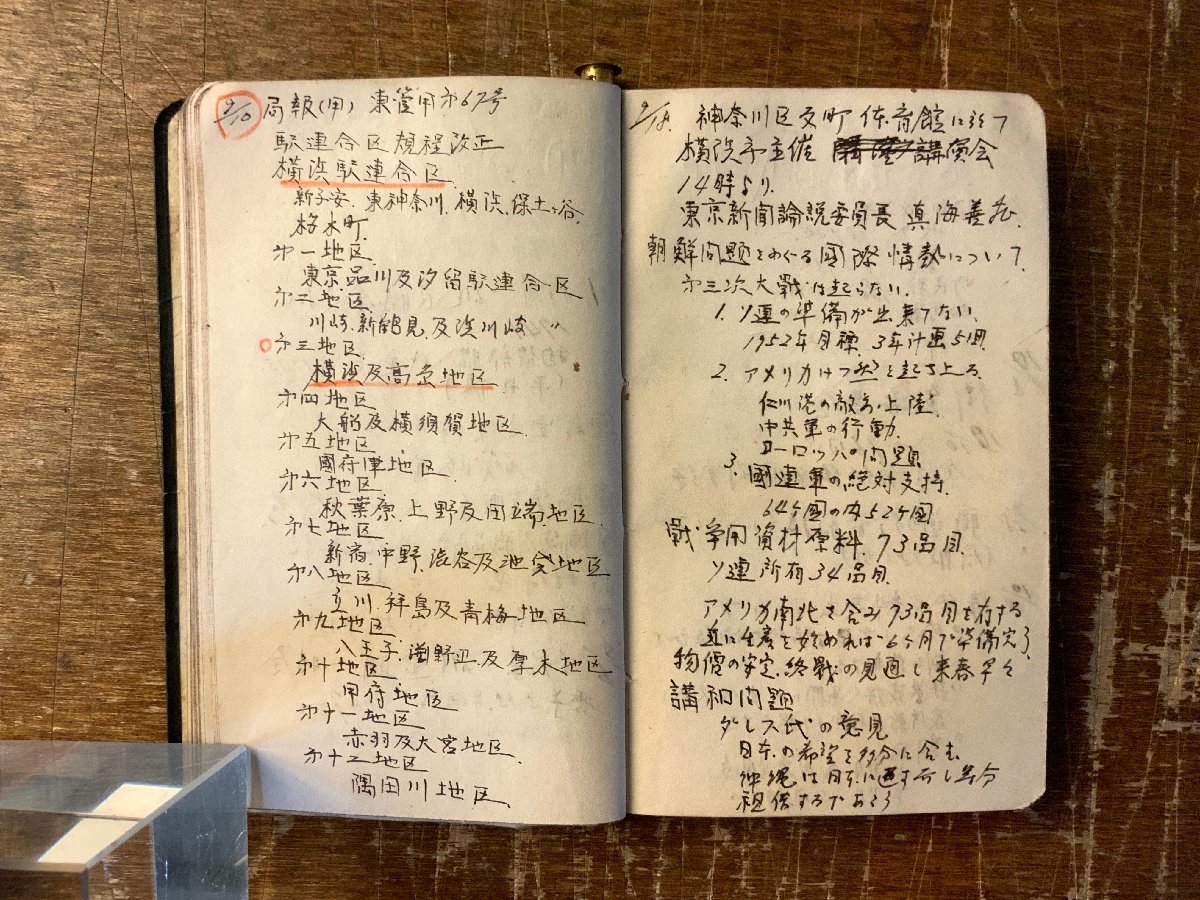 9/10 局報(甲) 東管甲才67号
駅連合区規程改正
横浜駅連合区
新子安、東神奈川、横浜、保土ヶ谷
桜木町
才一地区
東京品川及汐留駅連合区
才二地区
川崎、新鶴見、及浜川崎 〃
才三地区
横浜及高島地区
才四地区
大船及横須賀地区
才五地区
國府津地区
才六地区
秋葉原、上野及田端地区
才七地区
新宿、中野、渋谷及池袋地区
才八地区
立川、拝島及青梅地区
才九地区
八王子、淵野辺、及厚木地区
才十地区
甲府地区
才十一地区
赤羽及大宮地区
才十二地区
隅田川地区
神奈川区反町体育館に於て
横浜市主催 講演会
14時より
東京新聞論説委員長 真海善
朝鮮問題をめぐる國際情勢について
才三次大戦は起らない
1. ソ連の準備が出来てない
1952年目標 3年計画5回
2. アメリカは 起ち上る
仁川港の敵前上陸
中共軍の行動
ヨーロッパ問題
3. 國連軍の絶対支持
64ヶ國の内52ヶ國
戦争用資材原料、73品目
ソ連所有34品目
アメリカ南北を含み73品目を有する
直に生産を始めれば6ヶ月で準備完了
物價の安定、終戦の見通し来春早々
講和問題
ダレス氏の意見
日本の希望を多分に含む
沖縄は日本に返す 
租借するであろう